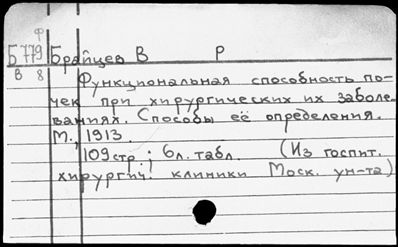 Ф
Б 779 Брайцев В Р
В 8
Функциональная способность по-
чек при хирургических их заболе-
ваниях. Способы её определения.
М., 1913.
109 стр.; 6 л. табл. (Из госпит.
хирургич. клиники Моск. ун-та)